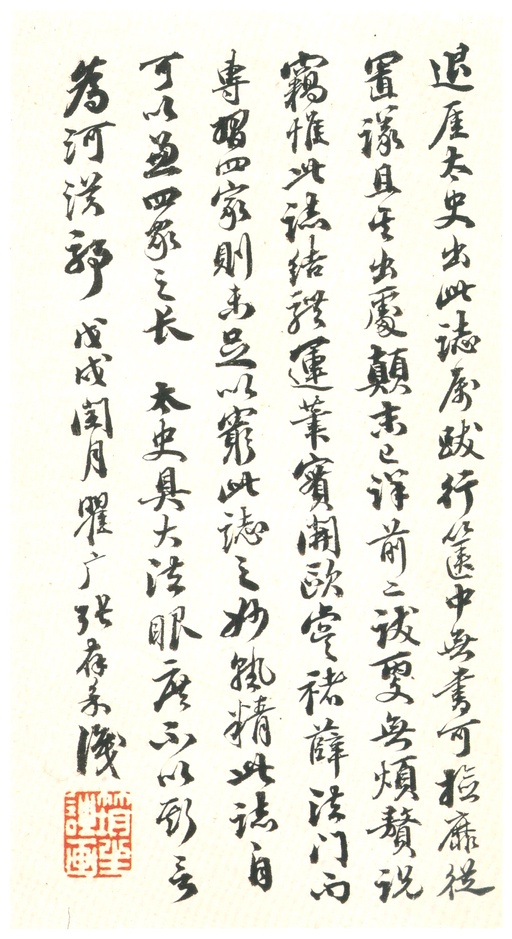 退厓太史出此誌屬跋行篋中無書可撿靡從
置議且其出處顛末已詳前二跋更無煩贅說
竊惟此誌結體運筆實開歐虞褚薛法門而
專習四家則未足以窮此誌之妙孰精此誌自
可以兼四家之長 太史具大法眼度不以斯言
為河漢 戊戌閏月瞿广張存識